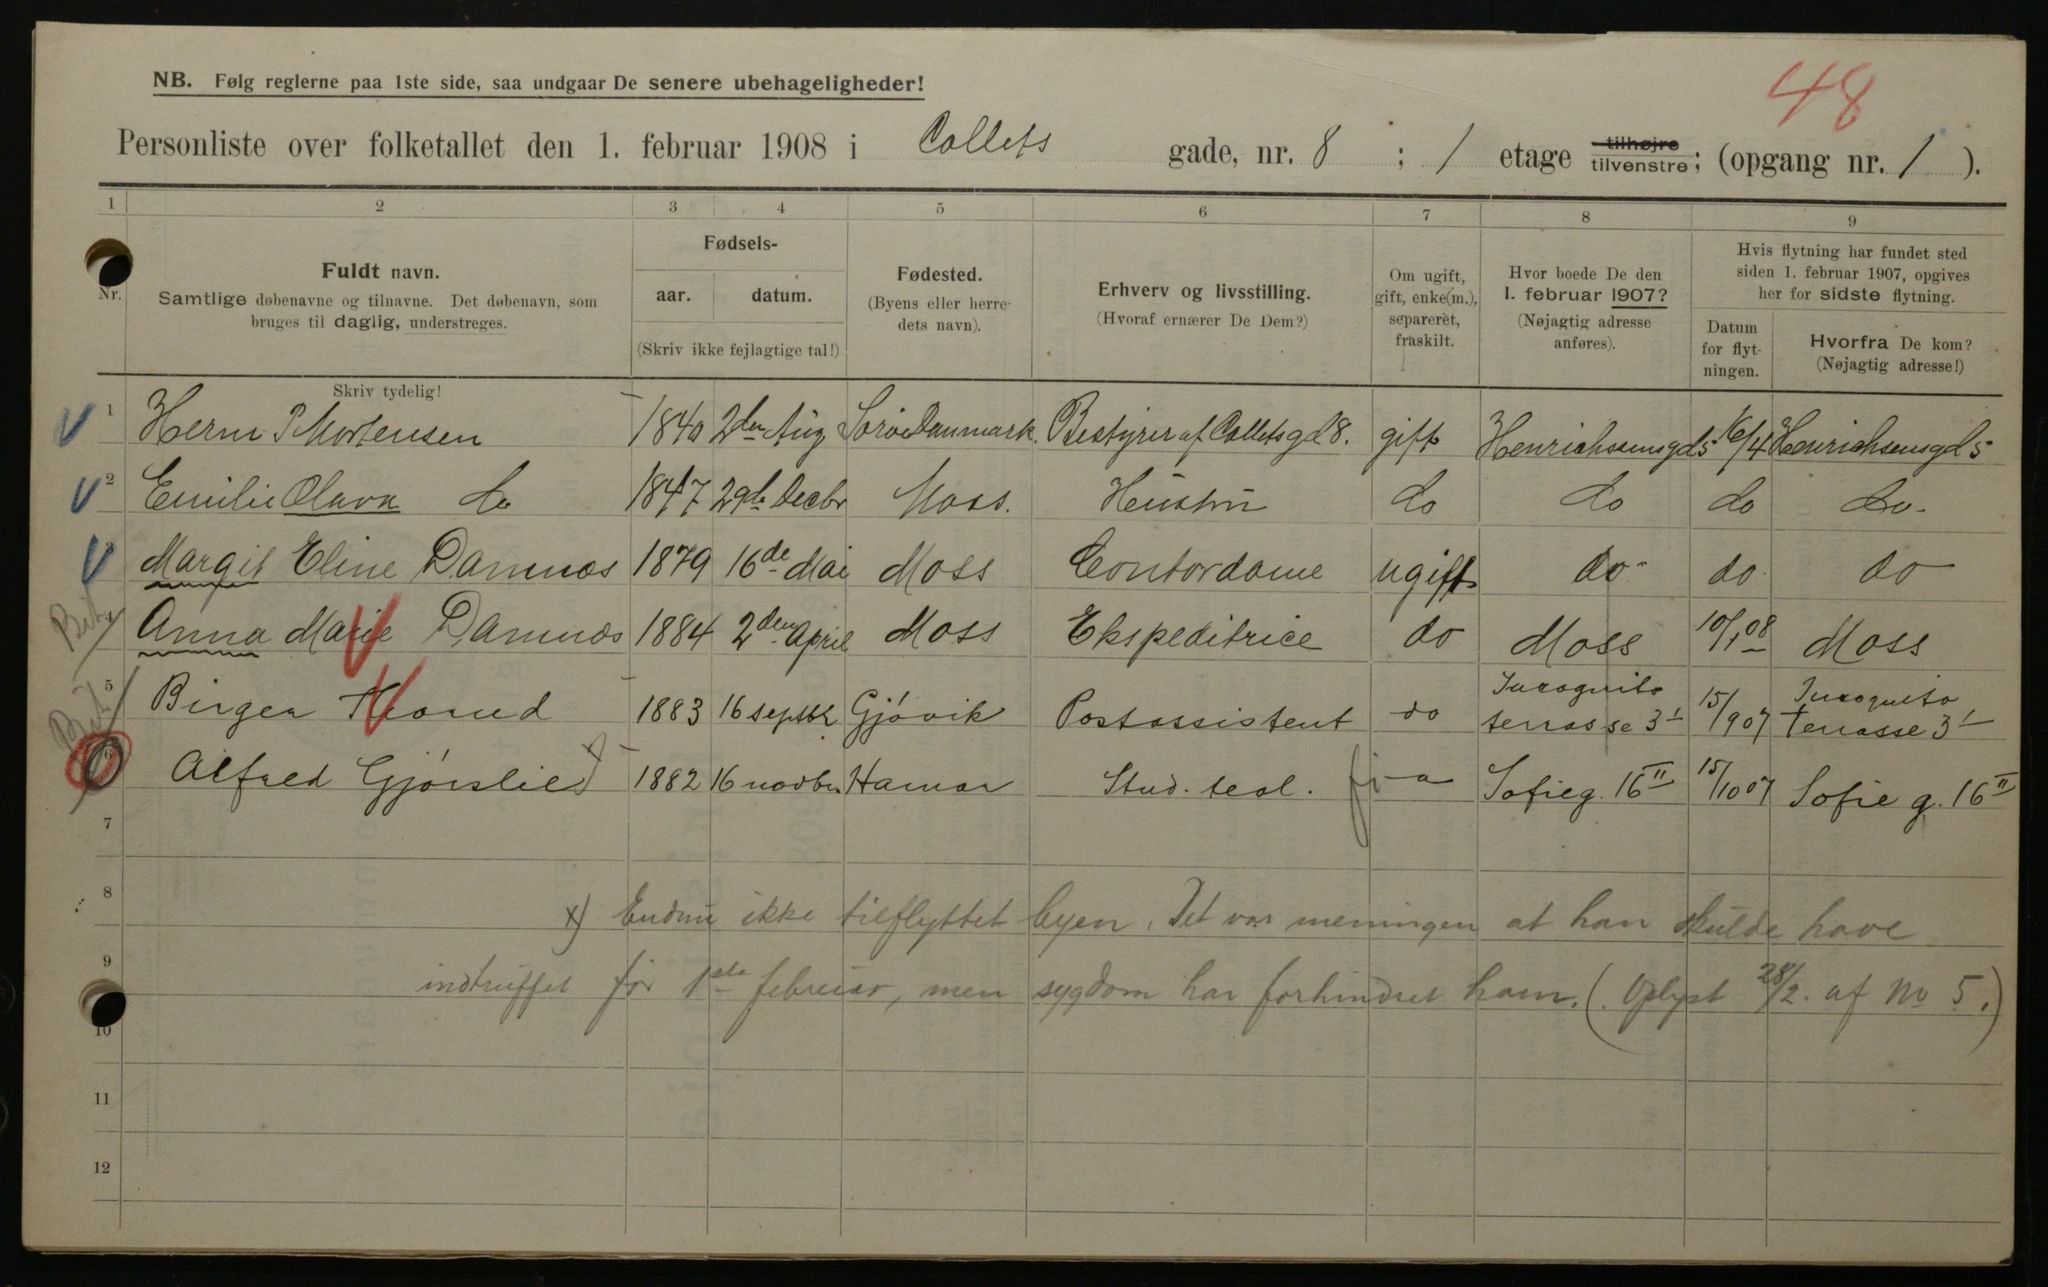 48
NB. Følg reglerne paa 1ste side, saa undgaar De senere ubehageligheder!
Personliste over folketallet den 1. februar 1908 i Collets gade, nr. 8 ; 1 etage tilhøjre tilvenstre; (opgang nr. 1 ).
1 2 3 4 5 6 7 8 9
Nr.
Fuldt navn.
Samtlige døbenavne og tilnavne. Det døbenavn, som
bruges til daglig, understreges.
Skriv tydelig!
Fødsels-
aar. datum.
(Skriv ikke fejlagtige tal!)
Fødested.
(Byens eller herre-
dets navn).
Erhverv og livsstilling.
(Hvoraf ernærer De Dem?)
Om ugift,
gift, enke(m.),
separeret,
fraskilt.
Hvor boede De den
1. februar 1907?
(Nøjagtig adresse
anføres).
Hvis flytning har fundet sted
siden 1. februar 1907, opgives
her for sidste flytning.
Datum
for flyt-
ningen.
Hvorfra De kom?
(Nøjagtig adresse!)
1 Herm P Mortensen 1840 2den Aug Sorø Danmark. Bestyrer af Colletsgd 8. gift Henrichsensgd 5 16/4 Henrichsensgd 5
2 Emilie Olava do 1847 29de Decbr Moss. Hustru do do do do.
3 Margit Eline Damnæs 1879 16de Mai Moss Contordame ugift do do do
Bit
4 Anna Marie Damnæs 1884 2den April Moss Ekspeditrice do Moss 10/1 08 Moss
Bit
5 Birger 1883 16 septbr Gjøvik Postassistent do Incognito terrasse 3 I 15/9 07 Incognito terrasse 3 I
6 Alfred Gjørslie x) 1882 16 novbr. Hamar Stud. teol. Sofieg. 16 II 15/10 07 Sofie g. 16 II
7
8 x) Endnu ikke tilflyttet byen. Det var meningen at han skulde have
9 indtruffet før 1ste februar, men sygdom har forhindret ham. (Oplyst 28/2. af No 5.)
10
11
12